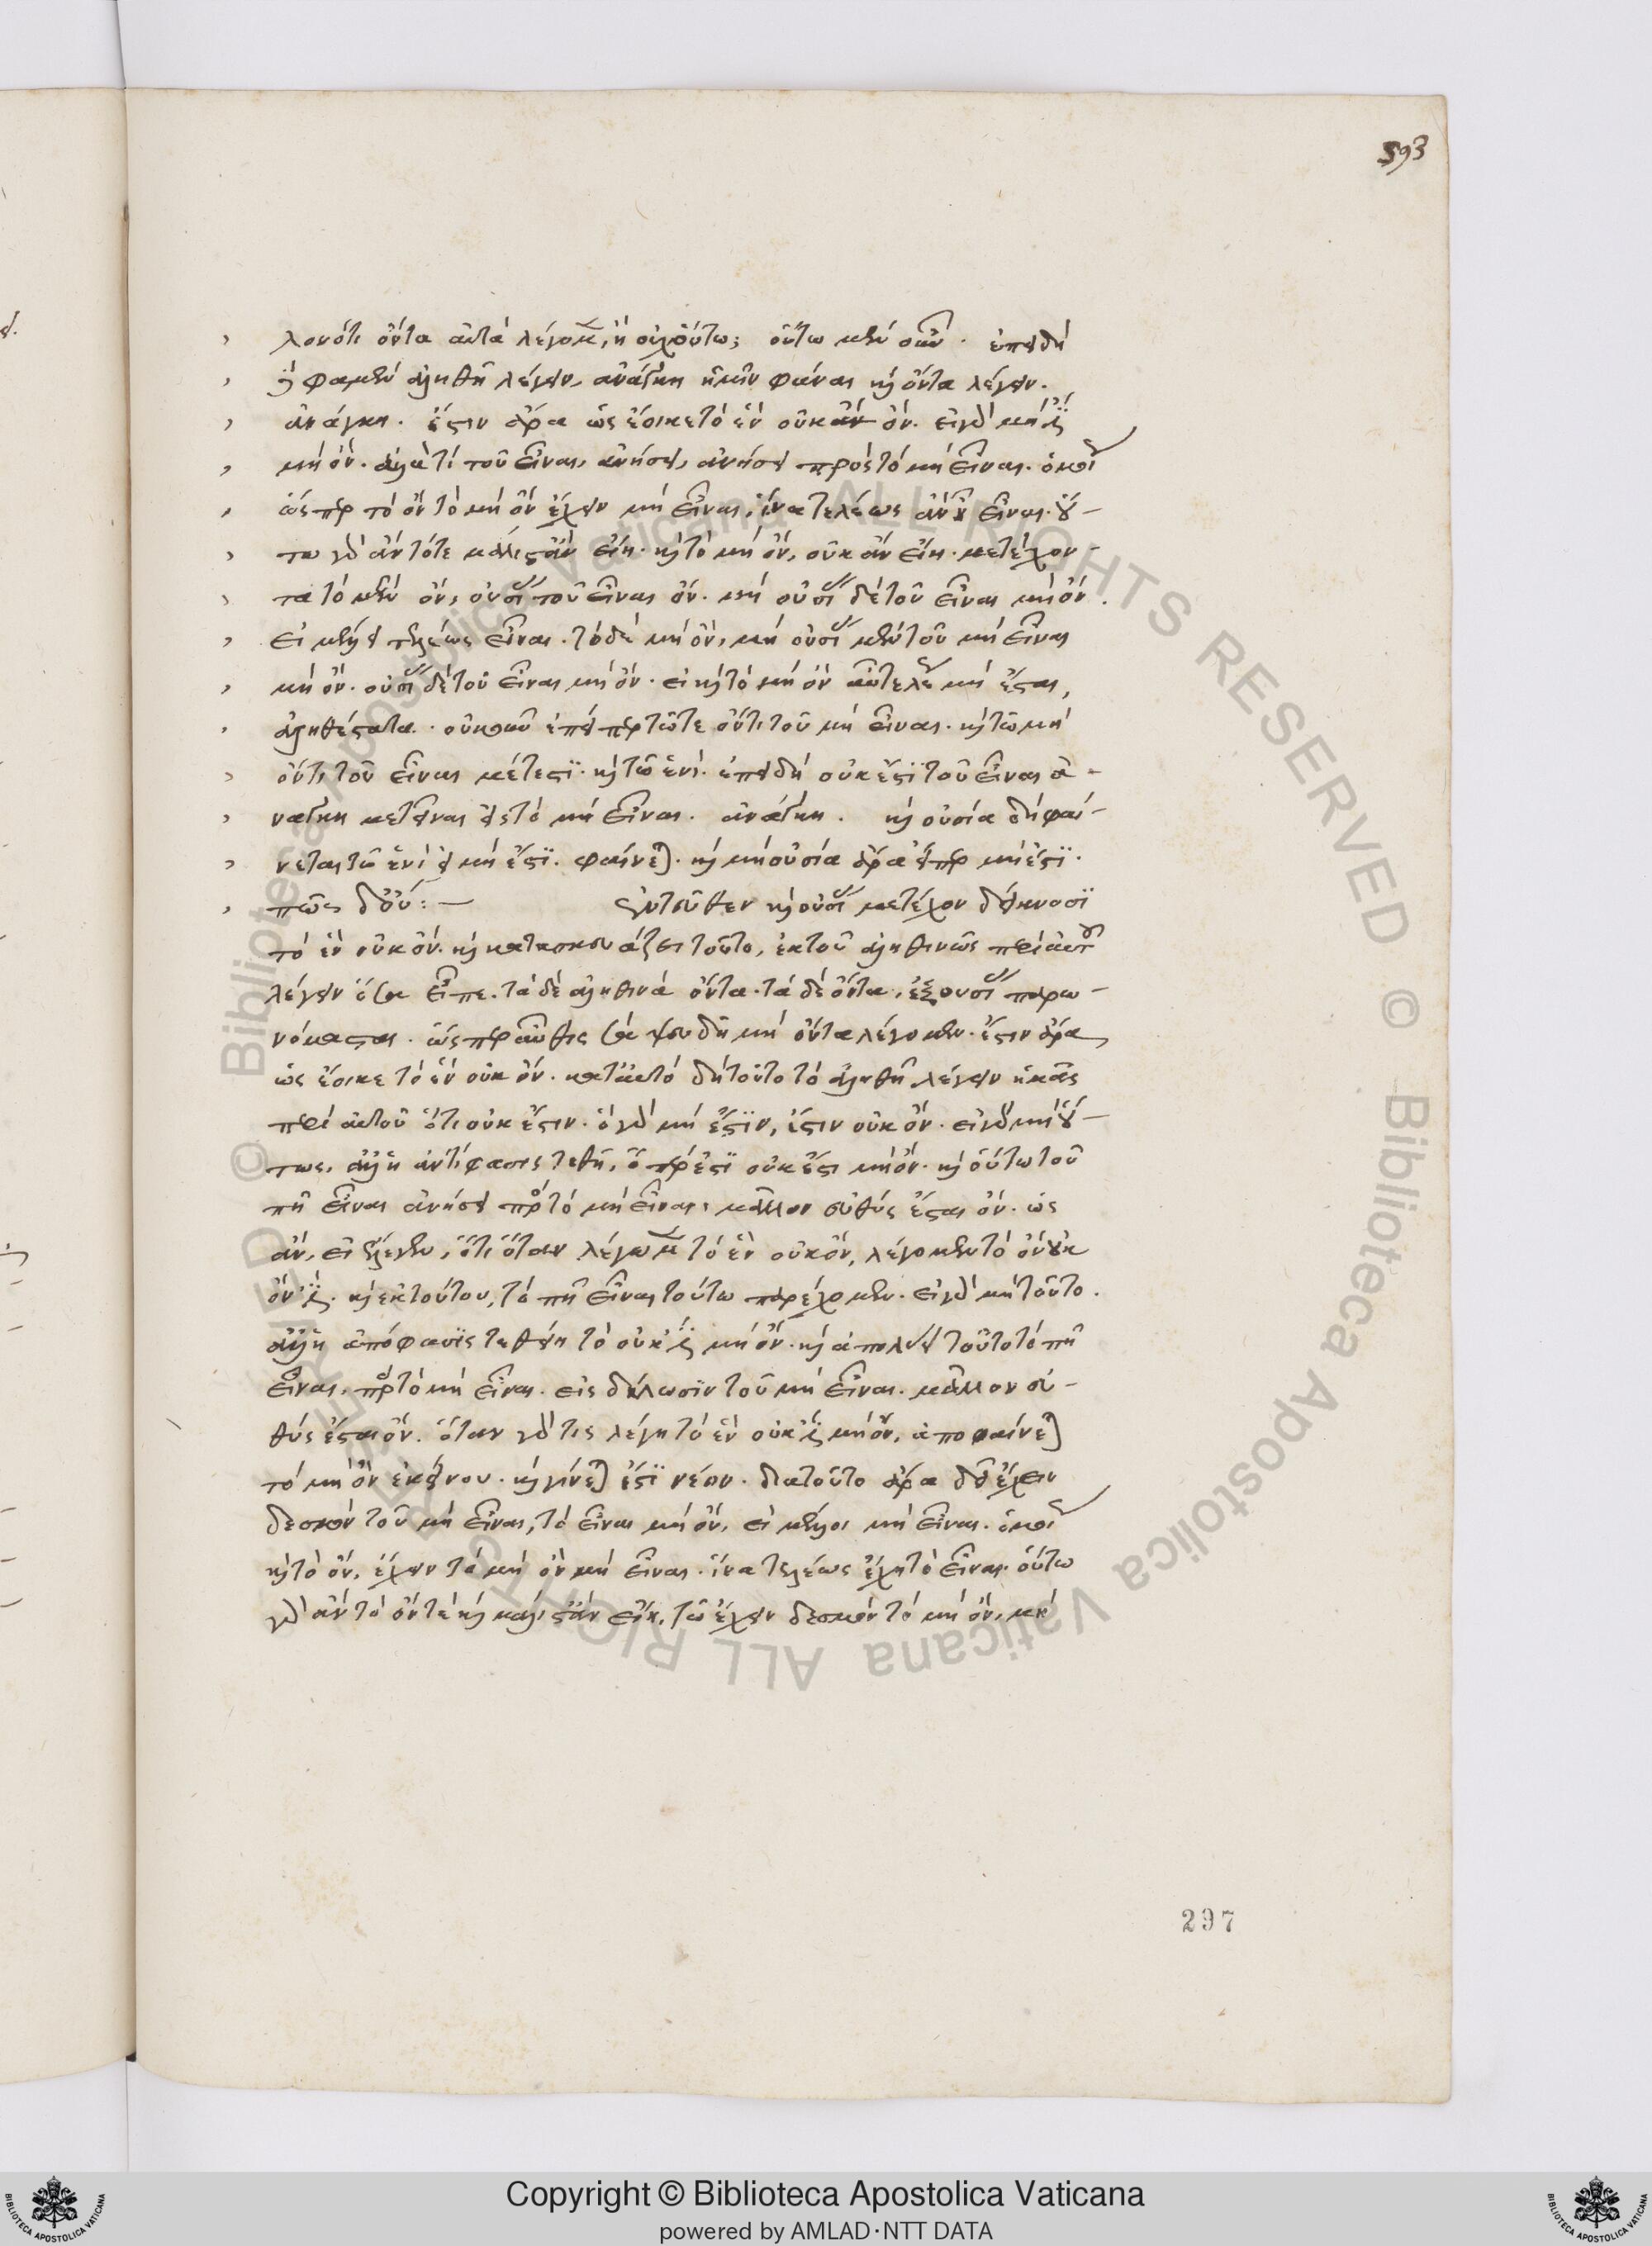 593
λονότι ὄντα αὐτὰ λέγομεν, ἢ οὐχ οὕτω; οὕτω μὲν οὖν. ἐπειδὴ
δὲ φαμὲν ἀληθῆ λέγειν, ἀνάγκη ἡμῖν φάναι καὶ ὄντα λέγειν.
ἀνάγκη. ἔστιν ἄρα ὡς ἔοικε τὸ ἓν οὐκ ὄν. εἰ γὰρ μὴ ἔσται
μὴ ὄν. ἀλλά τι τοῦ εἶναι, ἀνήσει, ἀνήσει πρὸς τὸ μὴ εἶναι. ὁμοίως
ὥσπερ τὸ ὂν τὸ μὴ ὂν ἔχειν μὴ εἶναι, ἵνα τελέως αὖ εἶναι. οὕ-
τω γὰρ ἂν τότε μάλιστ' ἂν εἴη. καὶ τὸ μὴ ὄν, οὐκ ἂν εἴη. μετέχον-
τα τὸ μὲν ὄν, οὐσίας τοῦ εἶναι ὄν. μὴ οὐσίας δὲ τοῦ εἶναι μὴ ὄν.
εἰ μέλλει τελέως εἶναι. τὸ δὲ μὴ ὄν, μὴ οὐσίας μὲν τοῦ μὴ εἶναι
μὴ ὄν. οὐσίας δὲ τοῦ εἶναι μὴ ὄν. εἰ καὶ τὸ μὴ ὂν αὖ τελέως μὴ ἔσται,
ἀληθέστατα. οὐκοῦν ἐπείπερ τῶ τε ὄντι τοῦ μὴ εἶναι. καὶ τῶ μὴ
ὄντι τοῦ εἶναι μέτεστι. καὶ τῶ ἑνί. ἐπειδὴ οὐκ ἔστι τοῦ εἶναι ἀ-
νάγκη μετεῖναι εἰς τὸ μὴ εἶναι. ἀνάγκη. καὶ οὐσία δὴ φαί-
νεται τῶ ἑνὶ εἰ μὴ ἔστι. φαίνεται. καὶ μὴ οὐσία ἄρα εἴπερ μὴ ἔστι.
πῶς δ' οὔ:—  Ἐντεῦθεν καὶ οὐσίας μετέχον δείκνυσι
τὸ ἓν οὐκ ὄν. καὶ κατασκευάζει τοῦτο, ἐκ τοῦ ἀληθινῶς περὶ αὐτοῦ
λέγειν ὅσα εἶπε. τὰ δὲ ἀληθινὰ ὄντα. τὰ δὲ ὄντα, ἐξ οὐσίας παρω-
νόμασται. ὥσπερ αὖθις τὰ ψευδῆ μὴ ὄντα λέγομεν. ἔστιν ἄρα
ὡς ἔοικε τὸ ἓν οὐκ ὄν. κατ' αὐτὸ δὴ τοῦτο τὸ ἀληθῆ λέγειν ἡμᾶς
περὶ αὐτοῦ ὅτι οὐκ ἔστιν. ὃ γὰρ μὴ ἔστιν, ἔστιν οὐκ ὄν. εἰ γὰρ μὴ οὕ-
τως, ἀλλ' ἡ ἀντίφασις τεθῆ, ὅπερ ἐστὶ οὐκ ἔστι μὴ ὄν. καὶ οὕτω τοῦ
πῆ εἶναι ἀνήσει πρὸς τὸ μὴ εἶναι, μᾶλλον εὐθὺς ἔσται ὄν. ὡς
ἂν, εἰ ἐλέγομεν, ὅτι ὅταν λέγωμεν τὸ ἓν οὐκ ὄν, λέγομεν τὸ ὂν οὐκ
ὂν ἔστι. καὶ ἐκ τούτου, τὸ πῆ εἶναι τούτω παρέχομεν. εἰ γὰρ μὴ τοῦτο.
ἀλλ' ἡ ἀπόφασις τεθείη τὸ οὐκ ἔστι μὴ ὄν. καὶ ἀπολύει τοῦτο τὸ πῆ
εἶναι, πρὸς τὸ μὴ εἶναι. εἰς δήλωσιν τοῦ μὴ εἶναι. μᾶλλον εὐ-
θὺς ἔσται ὄν. ὅταν γάρ τις λέγη τὸ ἓν οὐκ ἔστι μὴ ὄν, ἀποφαίνεται
τὸ μὴ ὂν ἐκείνου. καὶ γίνεται ἔστι νέον. διὰ τοῦτο ἄρα δεῖ ἔχειν
δεσμὸν τοῦ μὴ εἶναι, τὸ εἶναι μὴ ὄν, εἰ μέλλοι μὴ εἶναι. ὁμοίως
καὶ τὸ ὄν, ἔχειν τὸ μὴ ὂν μὴ εἶναι. ἵνα τελέως ἔχη τὸ εἶναι. οὕτω
γὰρ ἂν τὸ ὄν τε καὶ μάλιστ' ἂν εἴη, τῶ ἔχειν δεσμὸν τὸ μὴ ὄν, μὴ
297